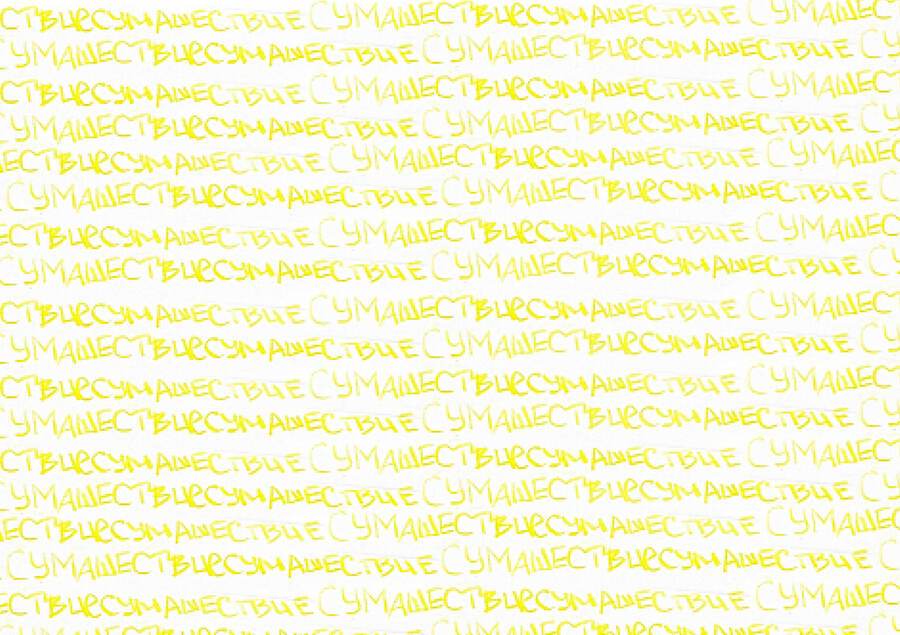 СТВИЕСУМАШЕСТВИЕ СУМАШЕСТВИЕСУМАШЕСТВИЕ СУМАШЕС
УМАШЕСТВИЕСУМАШЕСТВИЕ СУМАШЕСТВИЕСУМАШЕСТВИЕ СУ
СТВИЕСУМАШЕСТВИЕ СУМАШЕСТВИЕСУМАШЕСТВИЕ СУМАШЕС
УМАШЕСТВИЕСУМАШЕСТВИЕ СУМАШЕСТВИЕСУМАШЕСТВИЕ СУ
ЕСТВИЕСУМАШЕСТВИЕ СУМАШЕСТВИЕСУМАШЕСТВИЕ СУМАШЕС
СУМАШЕСТВИЕСУМАШЕСТВИЕ СУМАШЕСТВИЕСУМАШЕСТВИЕ С
ЕСТВИЕСУМАШЕСТВИЕ СУМАШЕСТВИЕСУМАШЕСТВИЕ СУМАШЕС
СУМАШЕСТВИЕСУМАШЕСТВИЕ СУМАШЕСТВИЕСУМАШЕСТВИЕ СУ
СТВИЕСУМАШЕСТВИЕ СУМАШЕСТВИЕСУМАШЕСТВИЕ СУМАШЕС
УМАШЕСТВИЕСУМАШЕСТВИЕ СУМАШЕСТВИЕСУМАШЕСТВИЕ СУ
СТВИЕСУМАШЕСТВИЕ СУМАШЕСТВИЕСУМАШЕСТВИЕ СУМАШЕС
УМАШЕСТВИЕСУМАШЕСТВИЕ СУМАШЕСТВИЕСУМАШЕСТВИЕ СУ
СТВИЕСУМАШЕСТВИЕ СУМАШЕСТВИЕСУМАШЕСТВИЕ СУМАШЕС
УМАШЕСТВИЕСУМАШЕСТВИЕ СУМАШЕСТВИЕСУМАШЕСТВИЕ СУ
ЕСТВИЕСУМАШЕСТВИЕ СУМАШЕСТВИЕСУМАШЕСТВИЕ СУМАШЕС
СУМАШЕСТВИЕСУМАШЕСТВИЕ СУМАШЕСТВИЕСУМАШЕСТВИЕ С
ЕСТВИЕСУМАШЕСТВИЕ СУМАШЕСТВИЕСУМАШЕСТВИЕ СУМАШЕС